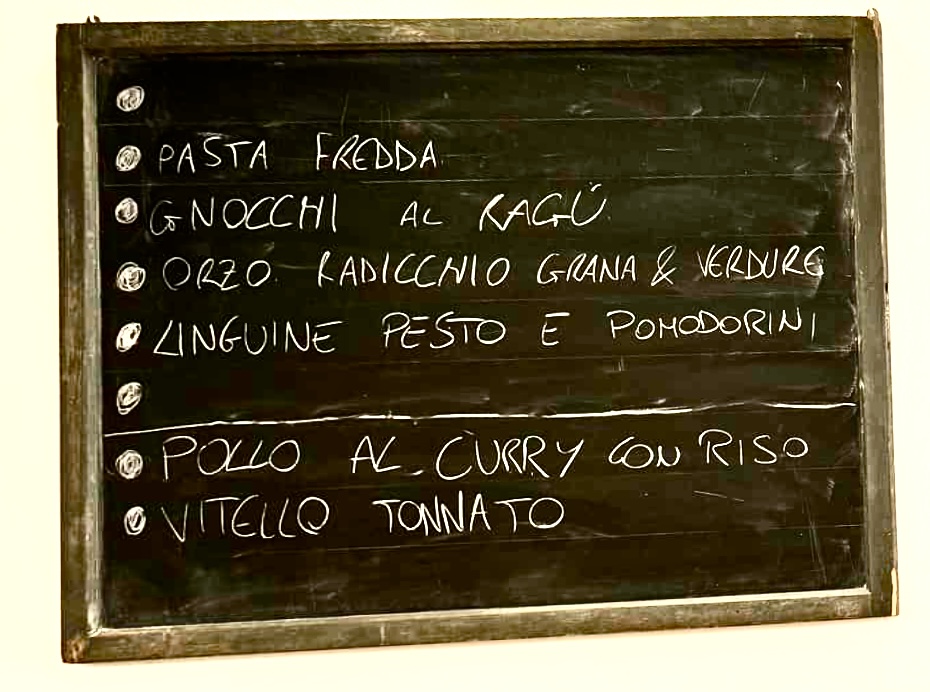 PASTA FREDDA
GNOCCHI AL RAGÚ
ORZO RADICCHIO GRANA & VERDURE
LINGUINE PESTO E POMODORINI
POLLO AL CURRY CON RISO
VITELLO TONNATO